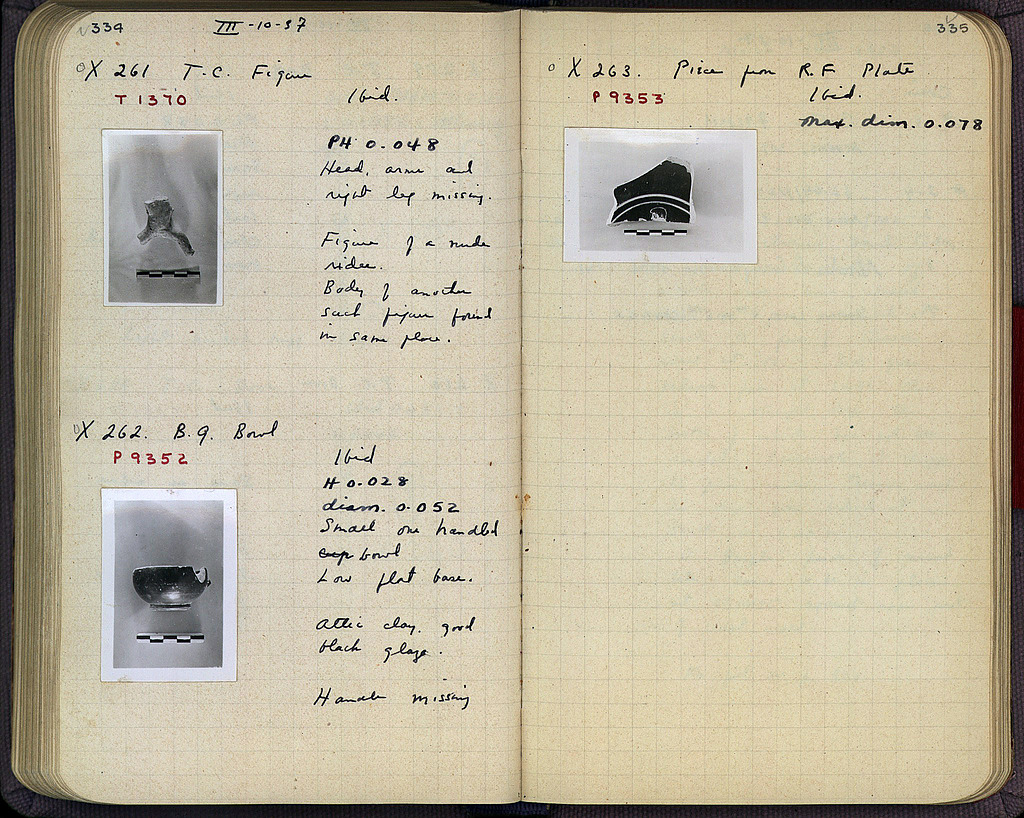 334 III-10-37
X 261 T.C. Figure
T 1370
Ibid.
PH 0.048
Head, arms and
right leg missing.
Figure of a nude
rider.
Body of another
such figure found
in same place.
X 262. B.G. Bowl
P 9352
Ibid
H 0.028
diam. 0.052
Small one handled
cup bowl
Low flat base.
Attic clay, good
black glaze.
Handle missing
335
X 263. Piece from R.F. Plate
P 9353
Ibid.
max. dim. 0.078